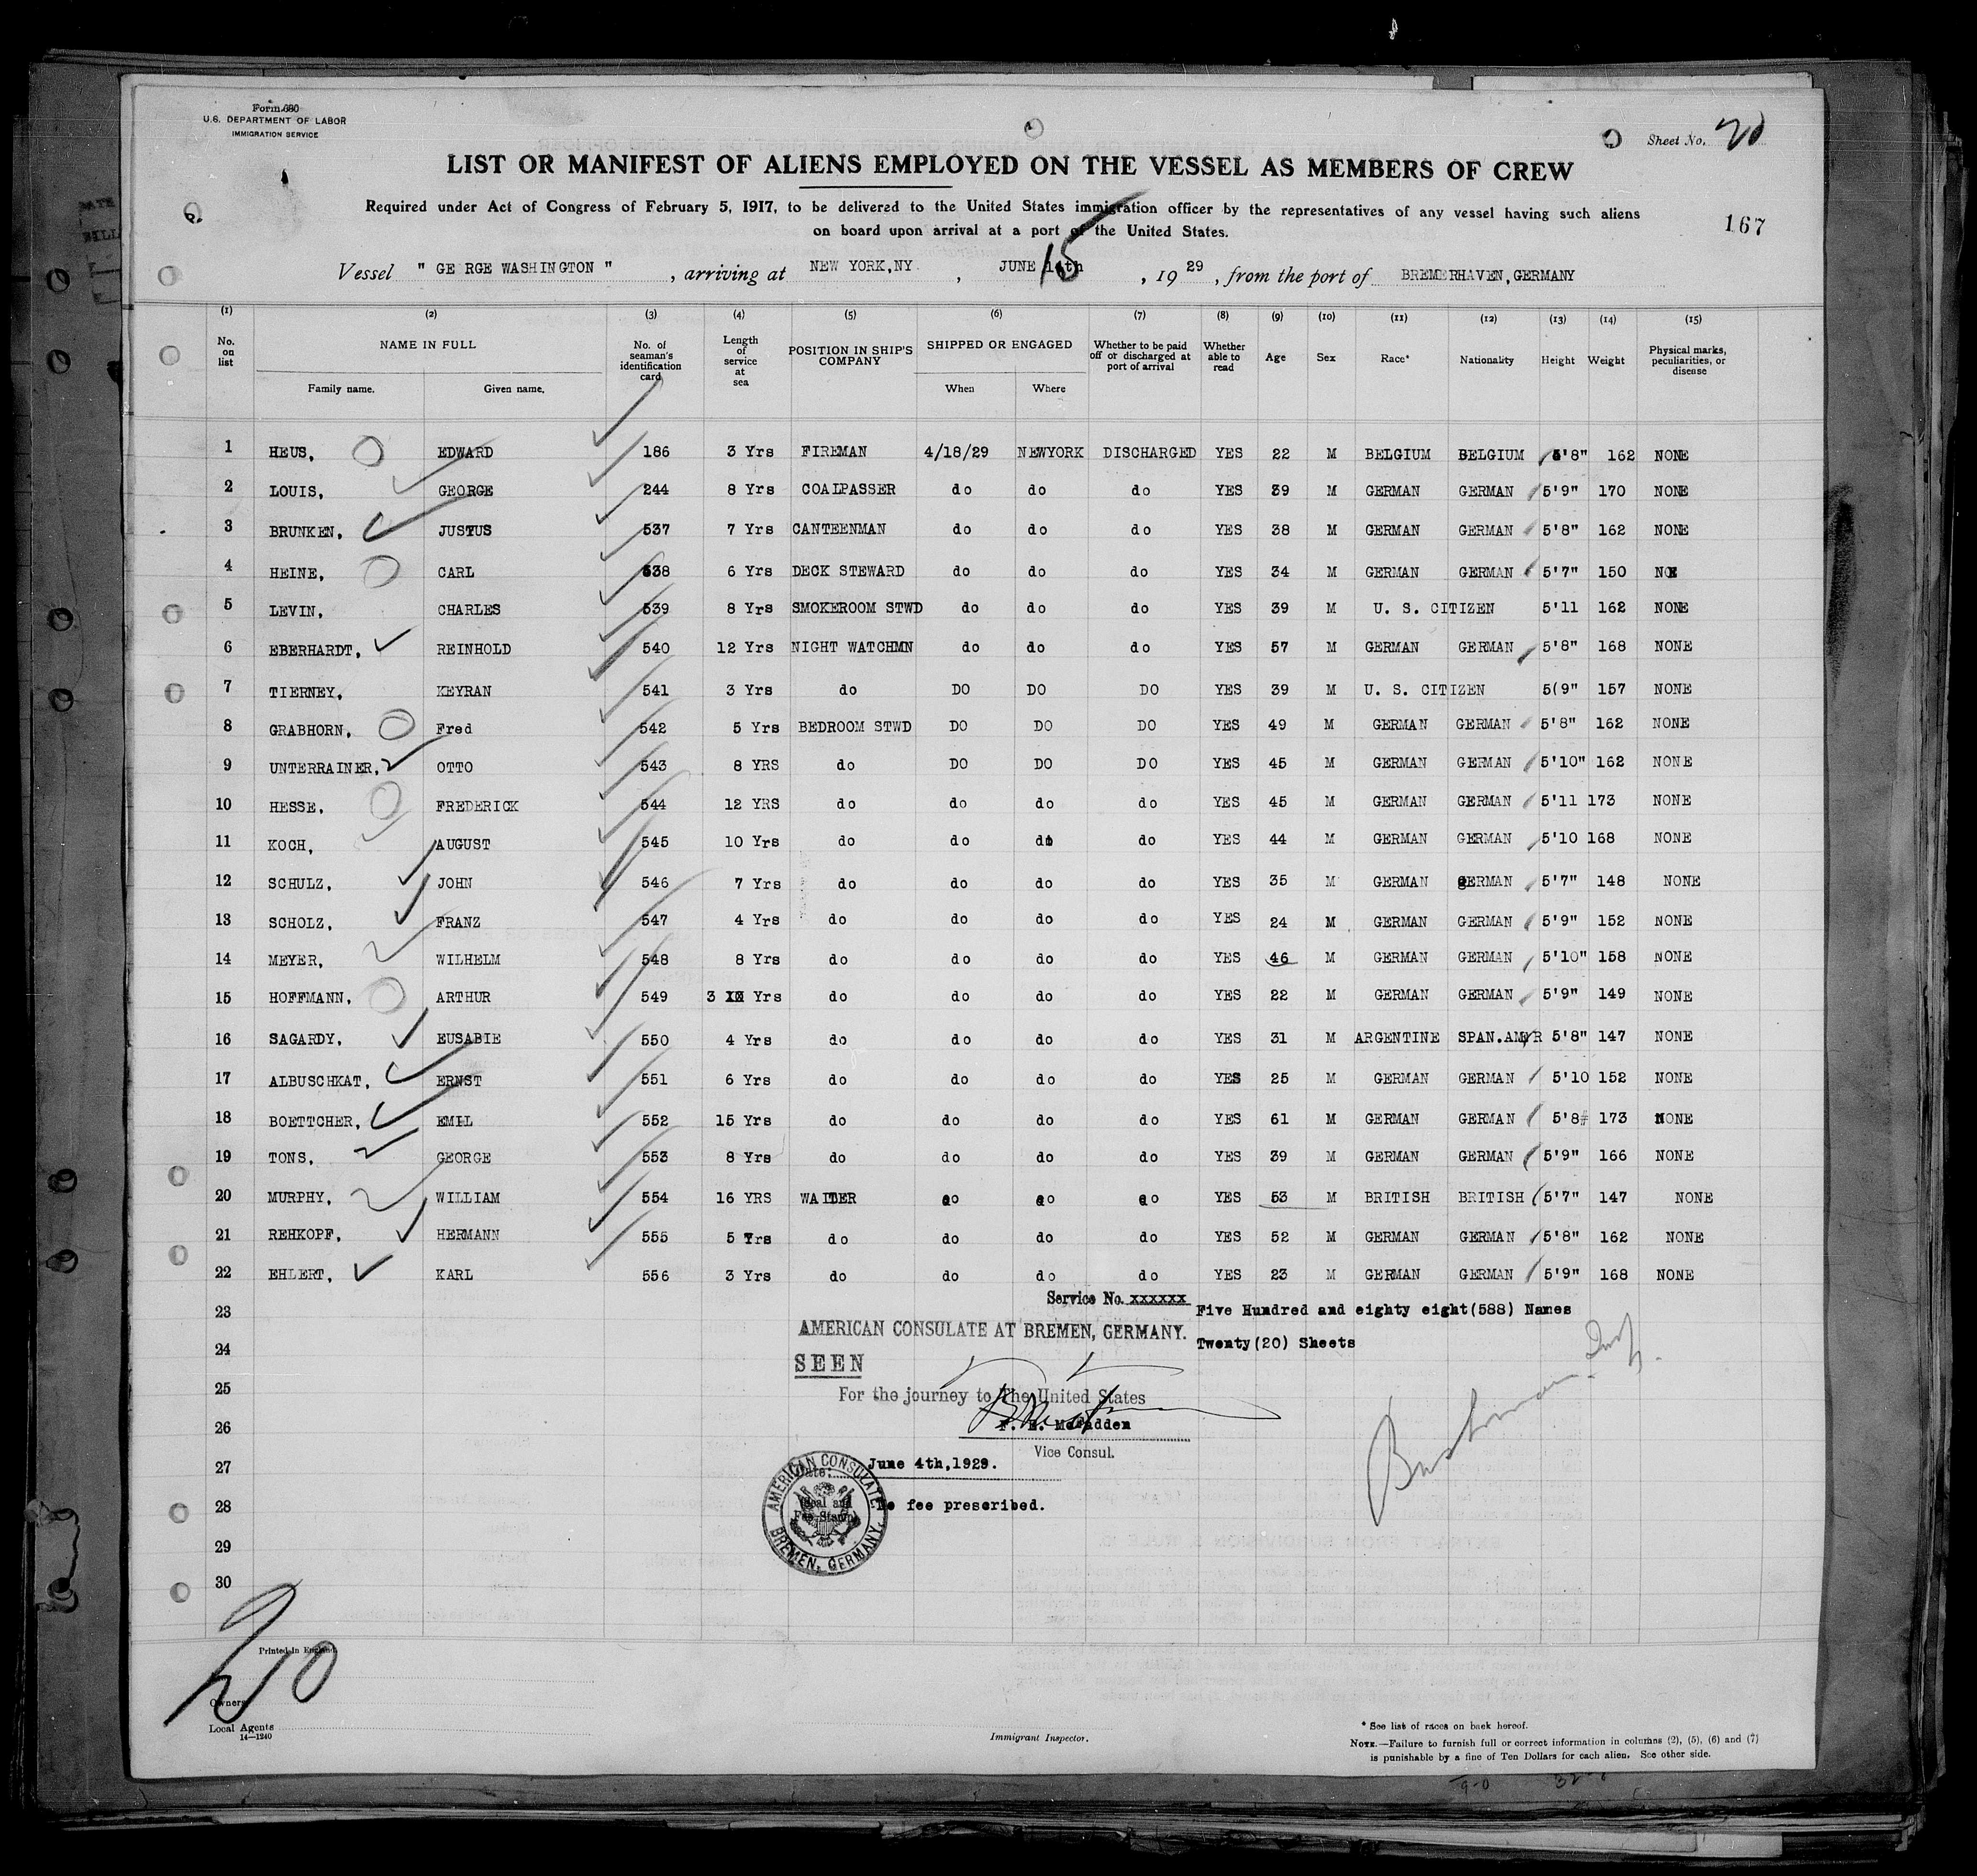 Form 680
U.S. DEPARTMENT OF LABOR
IMMIGRATION SERVICE
Sheet No. 20
LIST OR MANIFEST OF ALIENS EMPLOYED ON THE VESSEL AS MEMBERS OF CREW
Required under Act of Congress of February 5, 1917, to be delivered to the United States immigration officer by the representatives of any vessel having such aliens
on board upon arrival at a port of the United States.
167
Vessel " GEORGE WASHINGTON ", arriving at NEW YORK,NY. , JUNE 15 , 1929 , from the port of BREMERHAVEN, GERMANY
(1) (2) (3) (4) (5) (6) (7) (8) (9) (10) (11) (12) (13) (14) (15)
No. on list NAME IN FULL Family name. Given name. No. of seaman's identification card Length of service at sea POSITION IN SHIP'S COMPANY SHIPPED OR ENGAGED When Where Whether to be paid off or discharged at port of arrival Whether able to read Age Sex Race* Nationality Height Weight Physical marks, peculiarities, or disease
1 HEUS, EDWARD 186 3 Yrs FIREMAN 4/18/29 NEWYORK DISCHARGED YES 22 M BELGIUM BELGIUM 5'8" 162 NONE
2 LOUIS, GEORGE 244 8 Yrs COALPASSER do do do YES 39 M GERMAN GERMAN 5'9" 170 NONE
3 BRUNKEN, JUSTUS 537 7 Yrs CANTEENMAN do do do YES 38 M GERMAN GERMAN 5'8" 162 NONE
4 HEINE, CARL 538 6 Yrs DECK STEWARD do do do YES 34 M GERMAN GERMAN 5'7" 150
5 LEVIN, CHARLES 539 8 Yrs SMOKEROOM STWD do do do YES 39 M U. S. CITIZEN 5'11 162 NONE
6 EBERHARDT, REINHOLD 540 12 Yrs NIGHT WATCHMN do do do YES 57 M GERMAN GERMAN 5'8" 168 NONE
7 TIERNEY, KEYRAN 541 3 Yrs do DO DO DO YES 39 M U. S. CITIZEN 5(9" 157 NONE
8 GRABHORN, Fred 542 5 Yrs BEDROOM STWD DO DO DO YES 49 M GERMAN GERMAN 5'8" 162 NONE
9 UNTERRAINER, OTTO 543 8 YRS do DO DO DO YES 45 M GERMAN GERMAN 5'10" 162 NONE
10 HESSE, FREDERICK 544 12 YRS do do do do YES 45 M GERMAN GERMAN 5'11 173 NONE
11 KOCH, AUGUST 545 10 Yrs do do do do YES 44 M GERMAN GERMAN 5'10 168 NONE
12 SCHULZ, JOHN 546 7 Yrs do do do do YES 35 M GERMAN GERMAN 5'7" 148 NONE
13 SCHOLZ, FRANZ 547 4 Yrs do do do do YES 24 M GERMAN GERMAN 5'9" 152 NONE
14 MEYER, WILHELM 548 8 Yrs do do do do YES 46 M GERMAN GERMAN 5'10" 158 NONE
15 HOFFMANN, ARTHUR 549 3 Yrs do do do do YES 22 M GERMAN GERMAN 5'9" 149 NONE
16 SAGARDY, EUSABIE 550 4 Yrs do do do do YES 31 M ARGENTINE SPAN.AMER 5'8" 147 NONE
17 ALBUSCHKAT, ERNST 551 6 Yrs do do do do YES 25 M GERMAN GERMAN 5'10 152 NONE
18 BOETTCHER, EMIL 552 15 Yrs do do do do YES 61 M GERMAN GERMAN 5'8" 173 NONE
19 TONS, GEORGE 553 8 Yrs do do do do YES 39 M GERMAN GERMAN 5'9" 166 NONE
20 MURPHY, WILLIAM 554 16 YRS WAITER do do do YES 53 M BRITISH BRITISH 5'7" 147 NONE
21 REHKOPF, HERMANN 555 5 Yrs do do do do YES 52 M GERMAN GERMAN 5'8" 162 NONE
22 EHLERT, KARL 556 3 Yrs do do do do YES 23 M GERMAN GERMAN 5'9" 168 NONE
Service No. xxxxxx
23 Five Hundred and eighty eight(588) Names
AMERICAN CONSULATE AT BREMEN, GERMANY.
24 Twenty(20) Sheets
SEEN
25 For the journey to The United States
26 F. E. McFadden
Vice Consul.
27 Date: June 4th,1929.
28 No fee prescribed.
AMERICAN CONSULATE, BREMEN, GERMANY.
Seal and
Fee Stamp
29
30
Bushman
20
Printed in England
Owners
Local Agents
14—1240
Immigrant Inspector.
* See list of races on back hereof.
NOTE.—Failure to furnish full or correct information in columns (2), (5), (6) and (7)
is punishable by a fine of Ten Dollars for each alien. See other side.